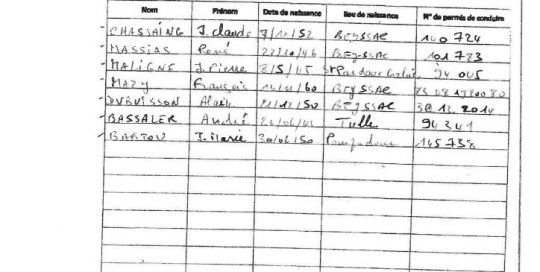 Nom Prénom Date de naissance lieu de naissance N° de permis de conduire
- CHASSAING J. claude 7/11/52 BEYSSAC 140 724
- MASSIAS René 22/10/46 BEYSSAC 101 723
- MALIGNE J. Pierre 8/5/45 94 045
- MAZY François /60 BEYSSAC
- DUBUISSON Alain /50 BEYSSAC 30.12.2014
- BASSALER André Tulle 94 341
- BARTOU J. Marie 30/06/50 Pompadour 145 738